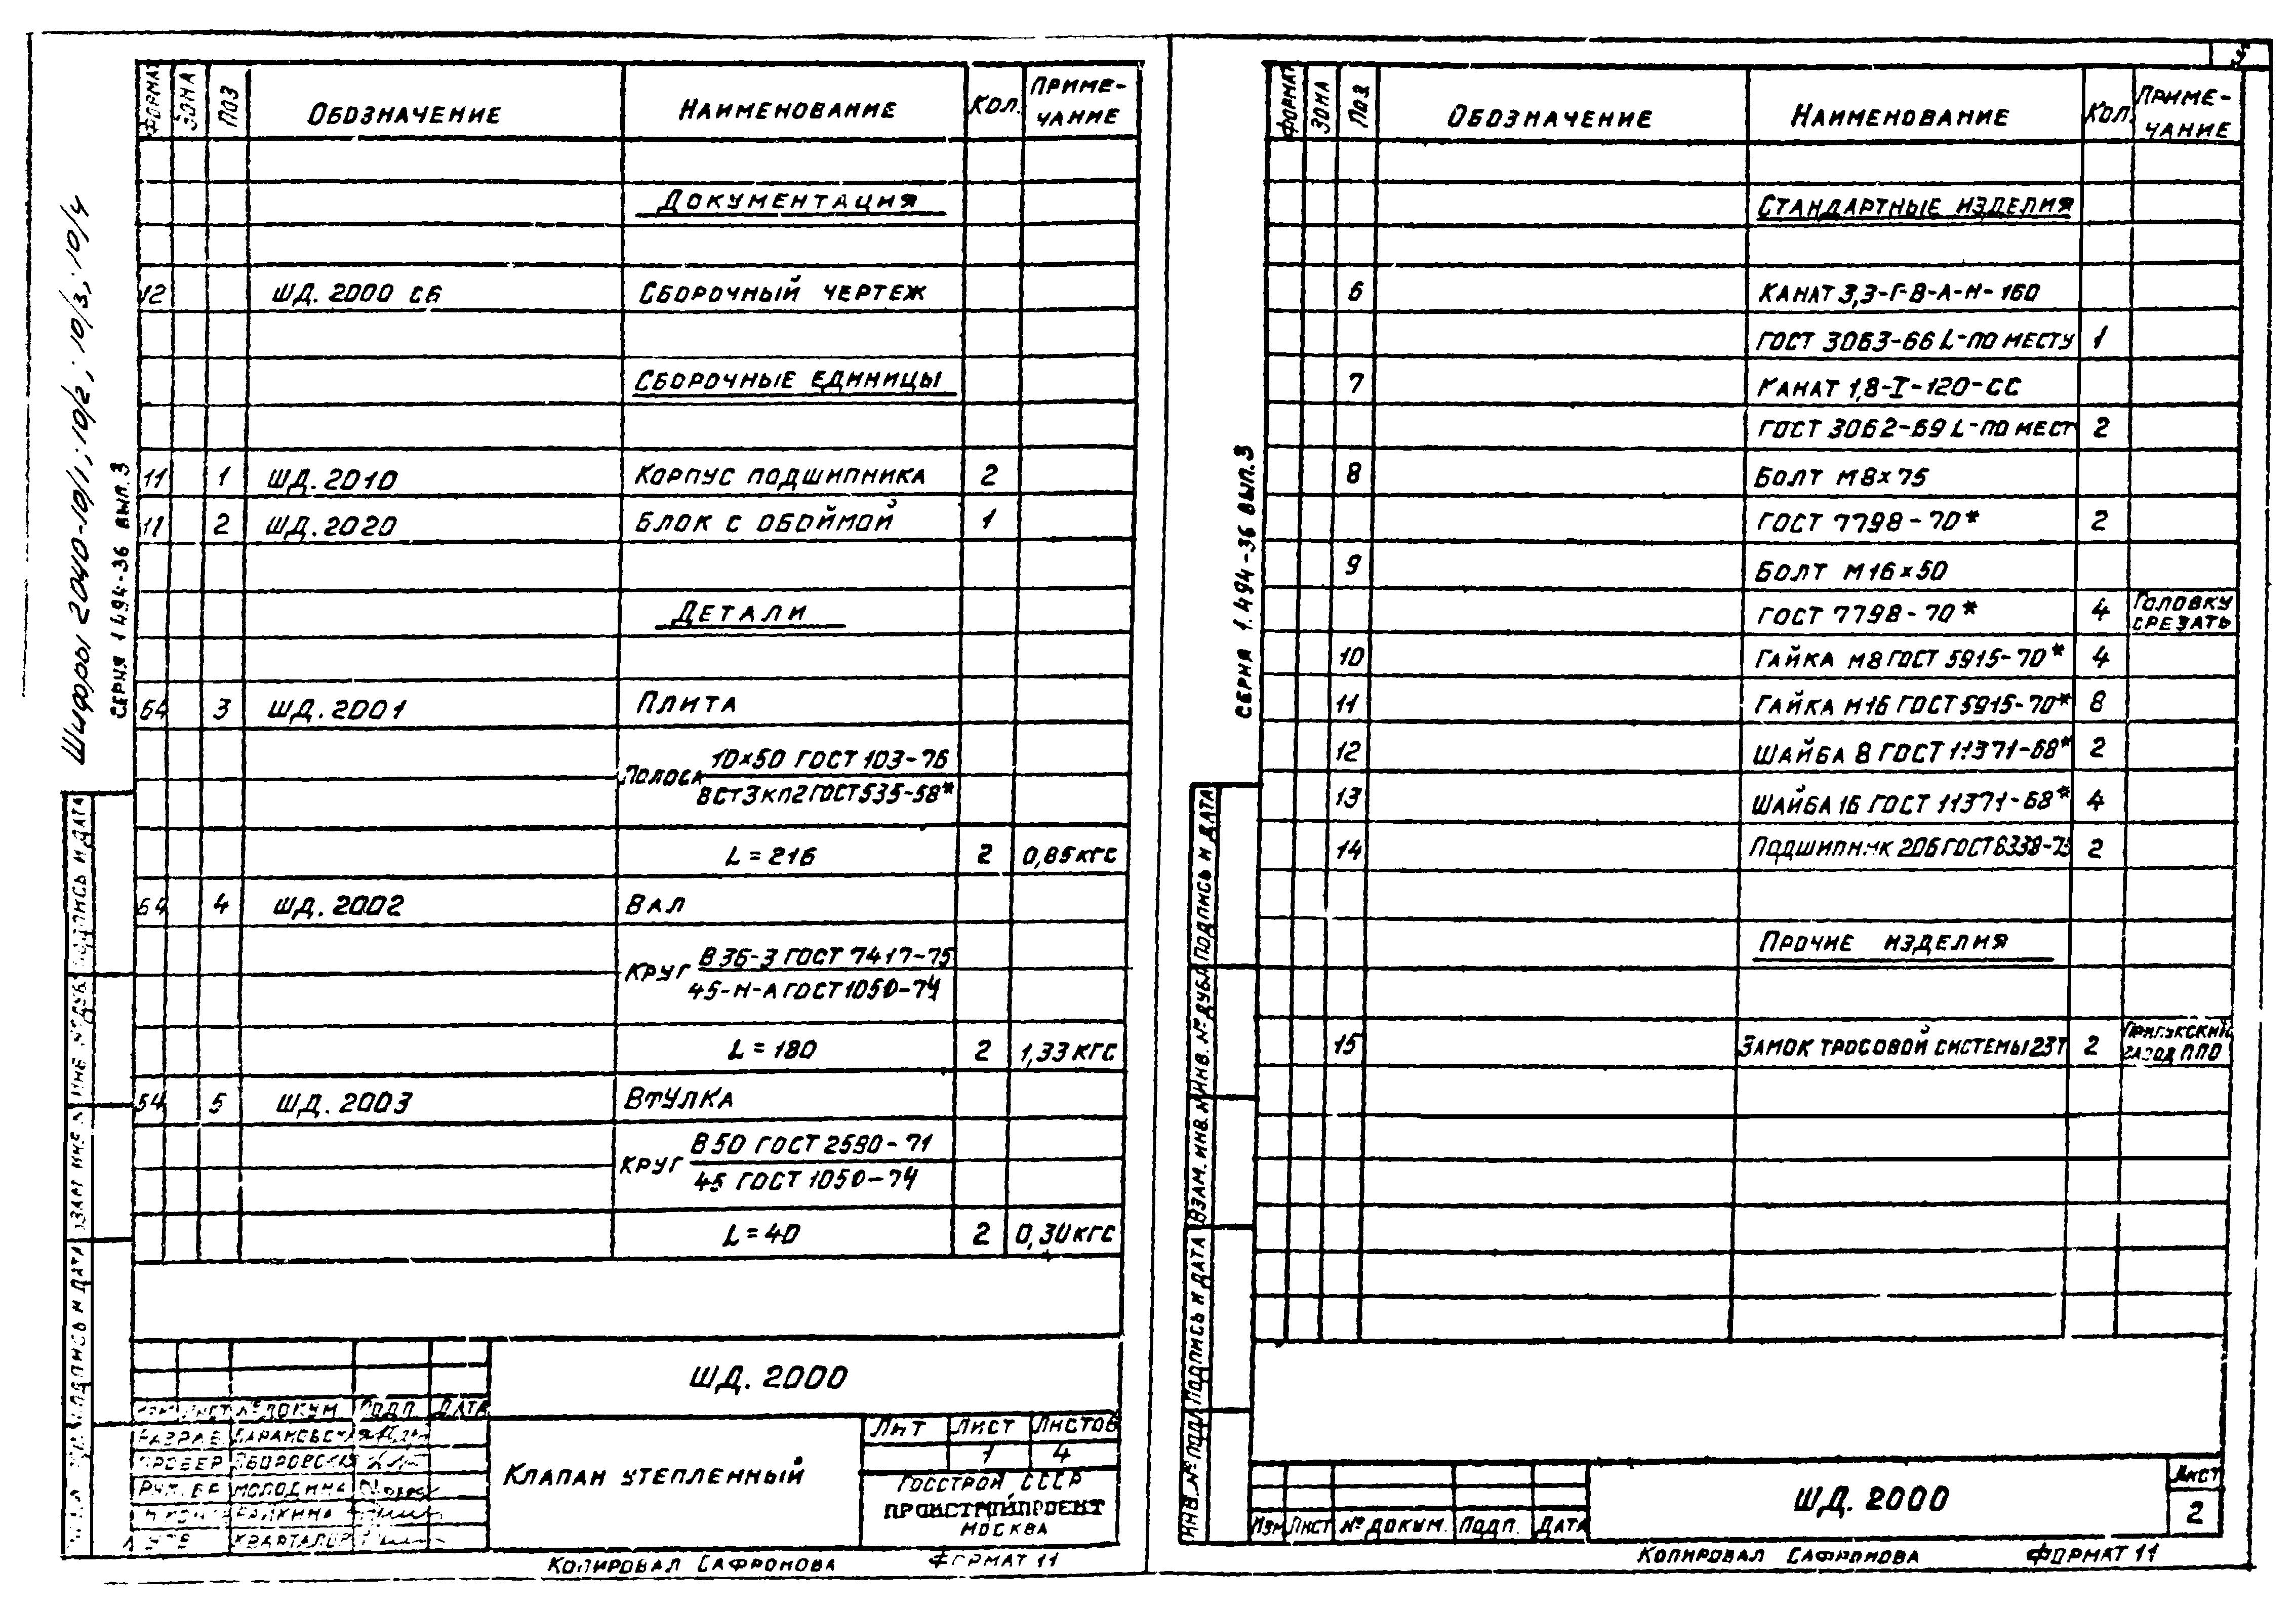 Шифры 2040-10/1; 10/2; 10/3; 10/4
СЕРИЯ 1.494-36 ВЫП.3
ФОРМАТ ЗОНА ПОЗ ОБОЗНАЧЕНИЕ НАИМЕНОВАНИЕ КОЛ. ПРИМЕ-
ЧАНИЕ
ДОКУМЕНТАЦИЯ
12 ШД.2000 СБ СБОРОЧНЫЙ ЧЕРТЕЖ
СБОРОЧНЫЕ ЕДИНИЦЫ
11 1 ШД.2010 КОРПУС ПОДШИПНИКА 2
11 2 ШД.2020 БЛОК С ОБОЙМОЙ 1
ДЕТАЛИ
64 3 ШД.2001 ПЛИТА
ПОЛОСА 10×50 ГОСТ 103-76
ВСТ3КП2 ГОСТ 535-58*
L=216 2 0,85 КГС
64 4 ШД.2002 ВАЛ
КРУГ В36-3 ГОСТ 7417-75
45-Н-А ГОСТ 1050-74
L=180 2 1,33 КГС
64 5 ШД.2003 ВТУЛКА
КРУГ В50 ГОСТ 2590-71
45 ГОСТ 1050-74
L=40 2 0,30 КГС
ПОДПИСЬ И ДАТА
ВЗАМ ИНВ №
ИНВ №ДУБЛ
ПОДПИСЬ И ДАТА
ШД.2000
ЛИСТ №ДОКУМ ПОДП. ДАТА
РАЗРАБ.
ПРОВЕР
РУК. БР МОЛОДИНА
КЛАПАН УТЕПЛЕННЫЙ
ЛИТ ЛИСТ ЛИСТОВ
1 4
ГОССТРОЙ СССР
ПРОМСТРОЙПРОЕКТ
МОСКВА
КОПИРОВАЛ САФРОНОВА ФОРМАТ 11
СЕРИЯ 1.494-36 ВЫП.3
ФОРМАТ ЗОНА ПОЗ. ОБОЗНАЧЕНИЕ НАИМЕНОВАНИЕ КОЛ. ПРИМЕ-
ЧАНИЕ
СТАНДАРТНЫЕ ИЗДЕЛИЯ
6 КАНАТ 3,3-Г-В-А-Н-160
ГОСТ 3063-66 L-ПО МЕСТУ 1
7 КАНАТ 1,8-I-120-СС
ГОСТ 3062-69 L-ПО МЕСТ 2
8 БОЛТ М8×75
ГОСТ 7798-70* 2
9 БОЛТ М16×50
ГОСТ 7798-70* 4 ГОЛОВКУ
СРЕЗАТЬ
10 ГАЙКА М8 ГОСТ 5915-70* 4
11 ГАЙКА М16 ГОСТ 5915-70* 8
12 ШАЙБА 8 ГОСТ 11371-68* 2
13 ШАЙБА 16 ГОСТ 11371-68* 4
14 ПОДШИПНИК 206 ГОСТ 8338-75 2
ПРОЧИЕ ИЗДЕЛИЯ
15 ЗАМОК ТРОСОВОЙ СИСТЕМЫ 23Т 2 ПРИЛУКСКИЙ
ЗАВОД ППО
ИНВ. №ПОДЛ
ПОДПИСЬ И ДАТА
ВЗАМ. ИНВ. №
ИНВ. №ДУБЛ
ПОДПИСЬ И ДАТА
ИЗМ ЛИСТ №ДОКУМ. ПОДП. ДАТА
ШД.2000
ЛИСТ
2
КОПИРОВАЛ САФРОНОВА ФОРМАТ 11